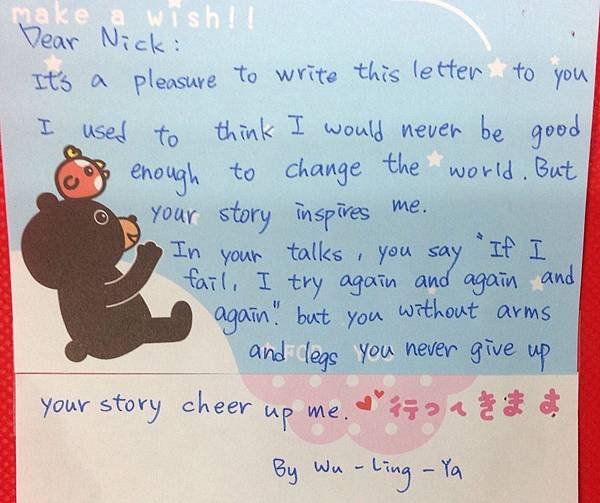 make a wish!!
Dear Nick :
It's a pleasure to write this letter to you
I used to think I would never be good
enough to change the world. But
your story inspires me.
In your talks, you say "If I
fail, I try again and again and
again." but you without arms
and legs you never give up
FOR YOU
your story cheer up me.
行ってきまま
By Wu-Ling-Ya